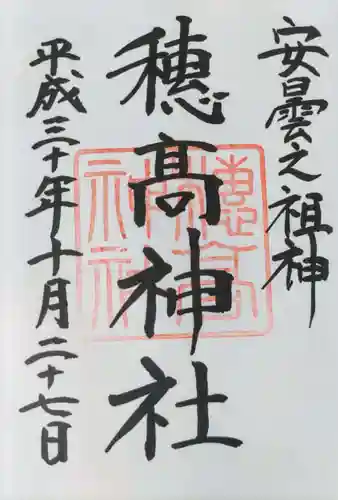 安曇之祖神
穂高神社
平成三十年十月二十七日
穂高神社